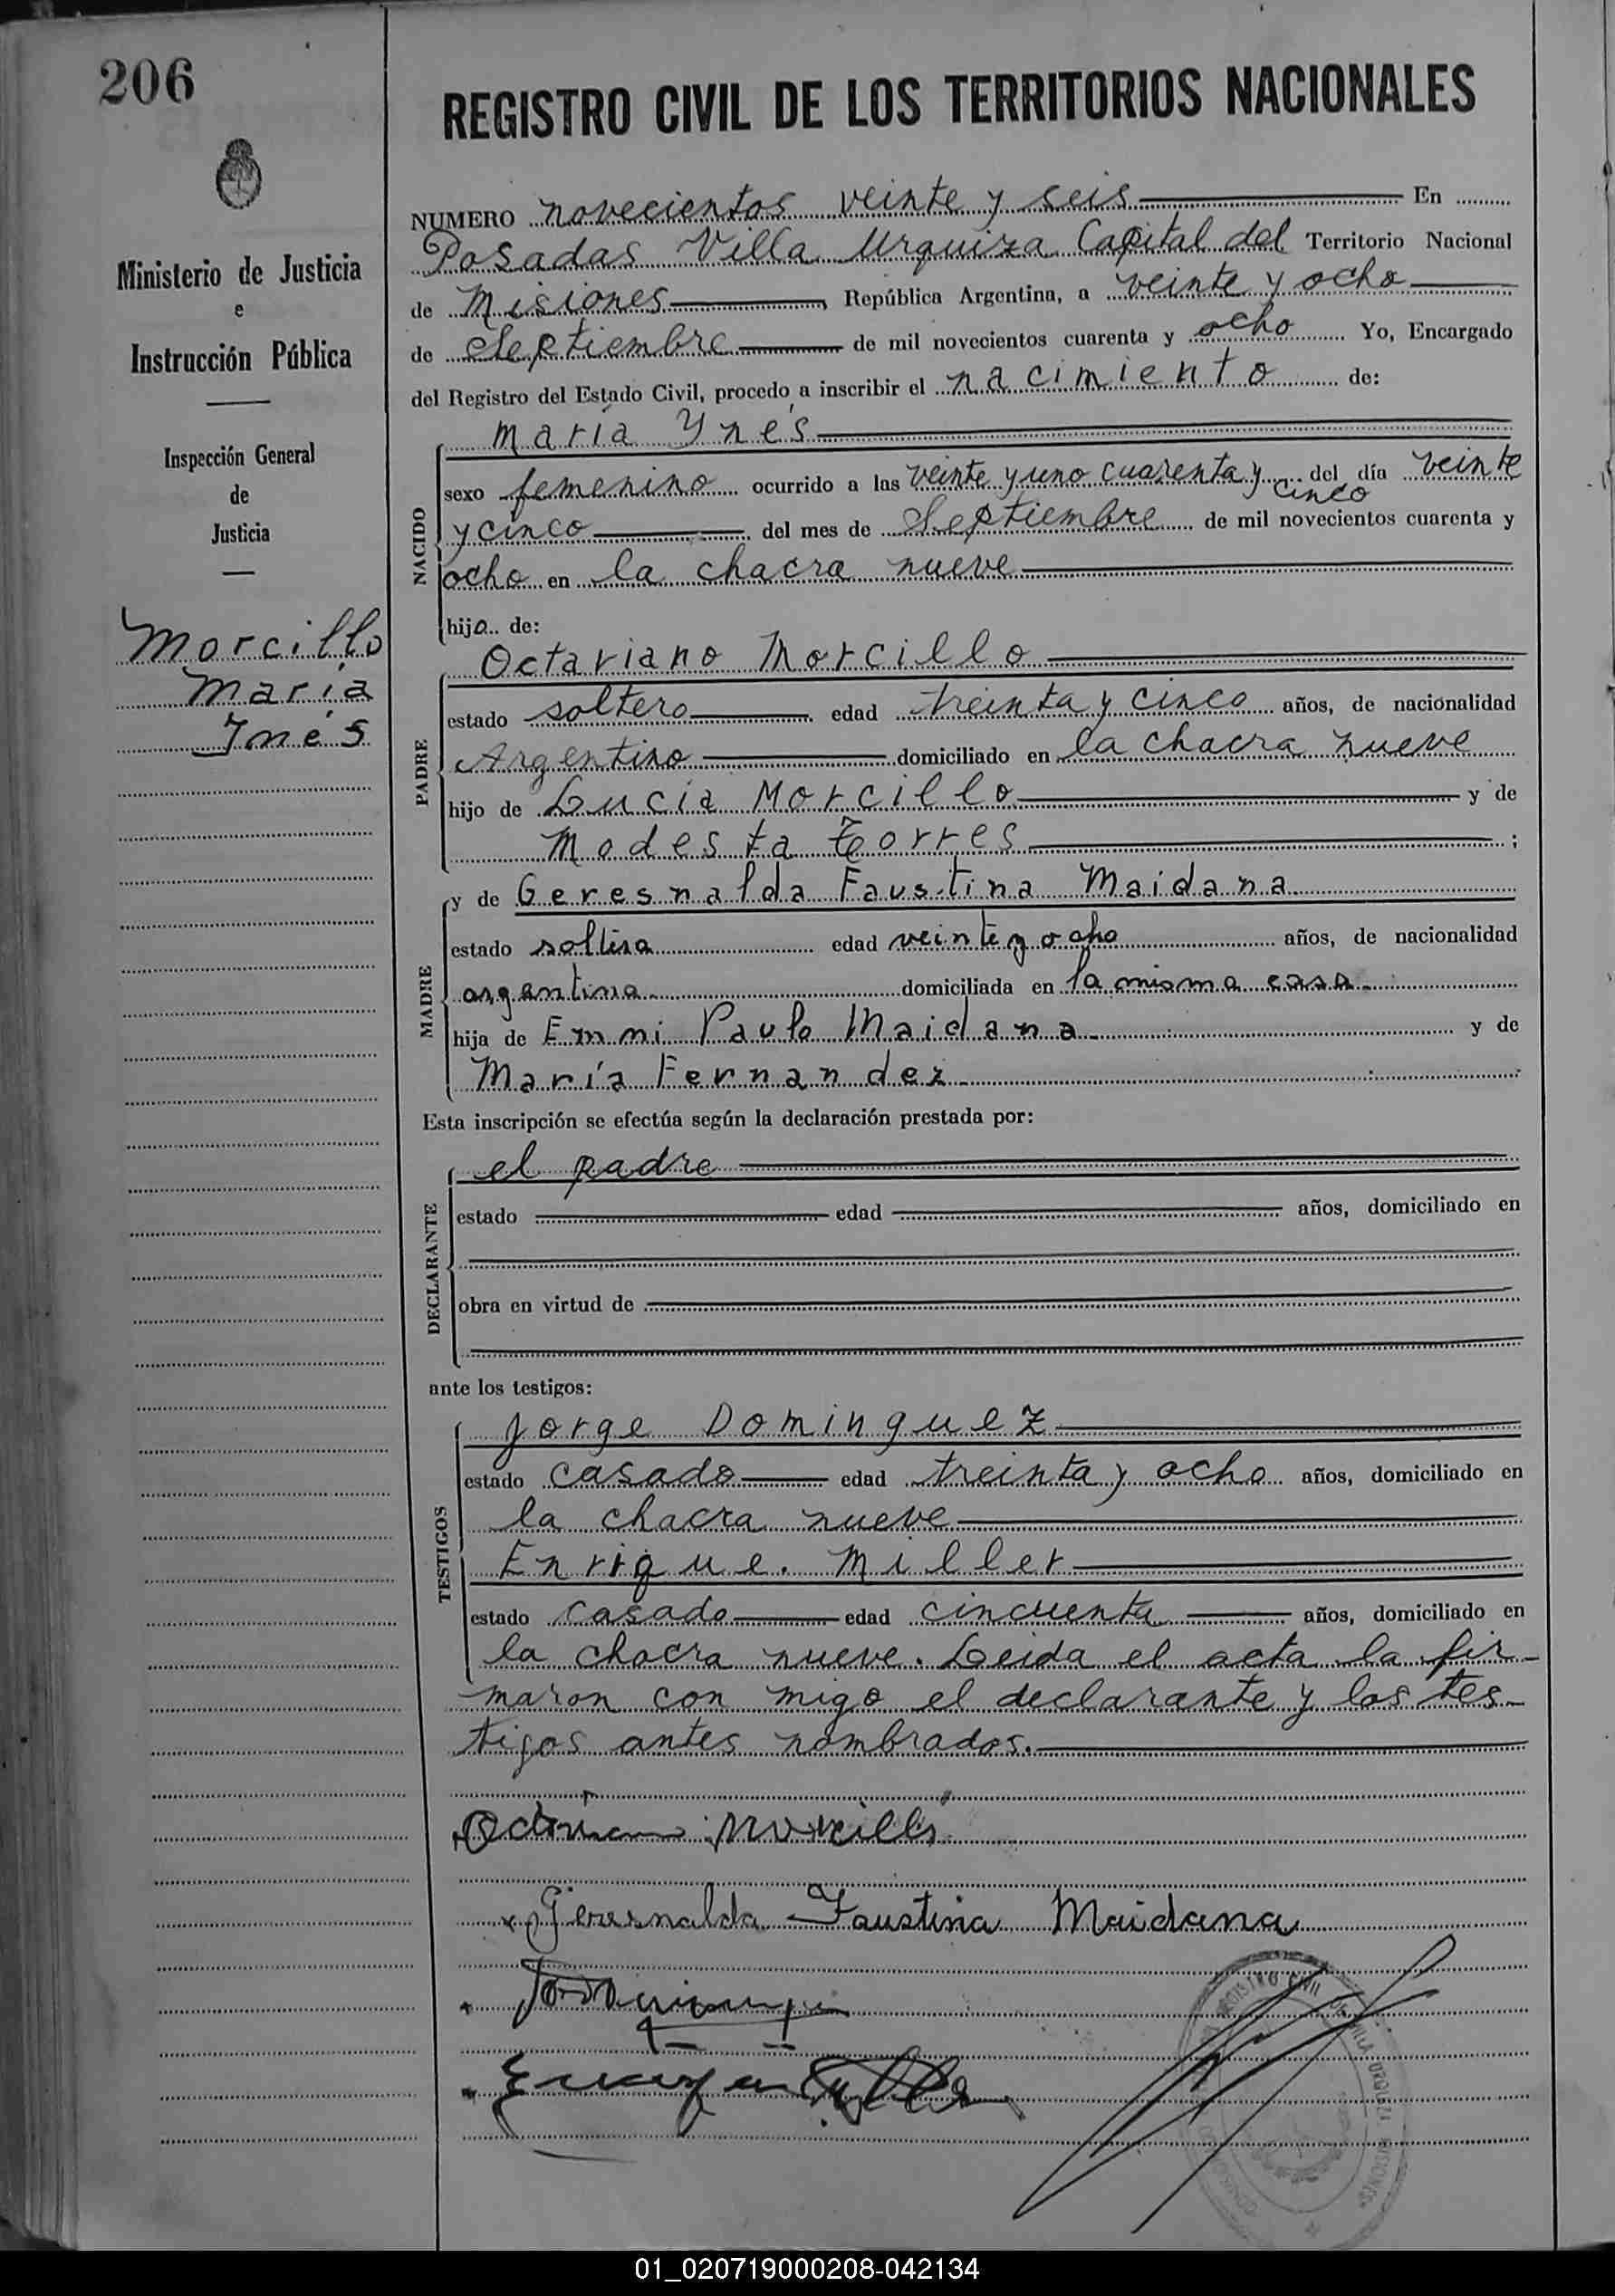 206
REGISTRO CIVIL DE LOS TERRITORIOS NACIONALES
Ministerio de Justicia
e
Instrucción Pública
Inspección General
de
Justicia
Morcillo
María
Inés
NUMERO novecientos veinte y seis En
Posadas Villa Urquiza Capital del Territorio Nacional
de Misiones, República Argentina, a veinte y ocho
de Septiembre de mil novecientos cuarenta y ocho Yo, Encargado
del Registro del Estado Civil, procedo a inscribir el nacimiento de:
NACIDO
María Ynés
sexo femenino ocurrido a las veinte y uno cuarenta y cinco del día veinte
y cinco del mes de Septiembre de mil novecientos cuarenta y
ocho en la chacra nueve
hija de:
PADRE
Octaviano Morcillo
estado soltero edad treinta y cinco años, de nacionalidad
Argentino domiciliado en la chacra nueve
hijo de Lucía Morcillo y de
Modesta Torres;
MADRE
y de Geresnalda Faustina Maidana
estado soltera edad veinte y ocho años, de nacionalidad
argentina domiciliada en la misma casa.
hija de Emmi Paulo Maidana y de
María Fernandez
Esta inscripción se efectúa según la declaración prestada por:
DECLARANTE
el padre
estado edad años, domiciliado en
obra en virtud de
ante los testigos:
TESTIGOS
Jorge Dominguez
estado casado edad treinta y ocho años, domiciliado en
la chacra nueve
Enrique. Miller
estado casado edad cincuenta años, domiciliado en
la chacra nueve. Leida el acta la fir-
maron con migo el declarante y los tes-
tigos antes nombrados.
Geresnalda Faustina Maidana
REGISTRO CIVIL DE VILLA URQUIZA MISIONES
01_020719000208-042134